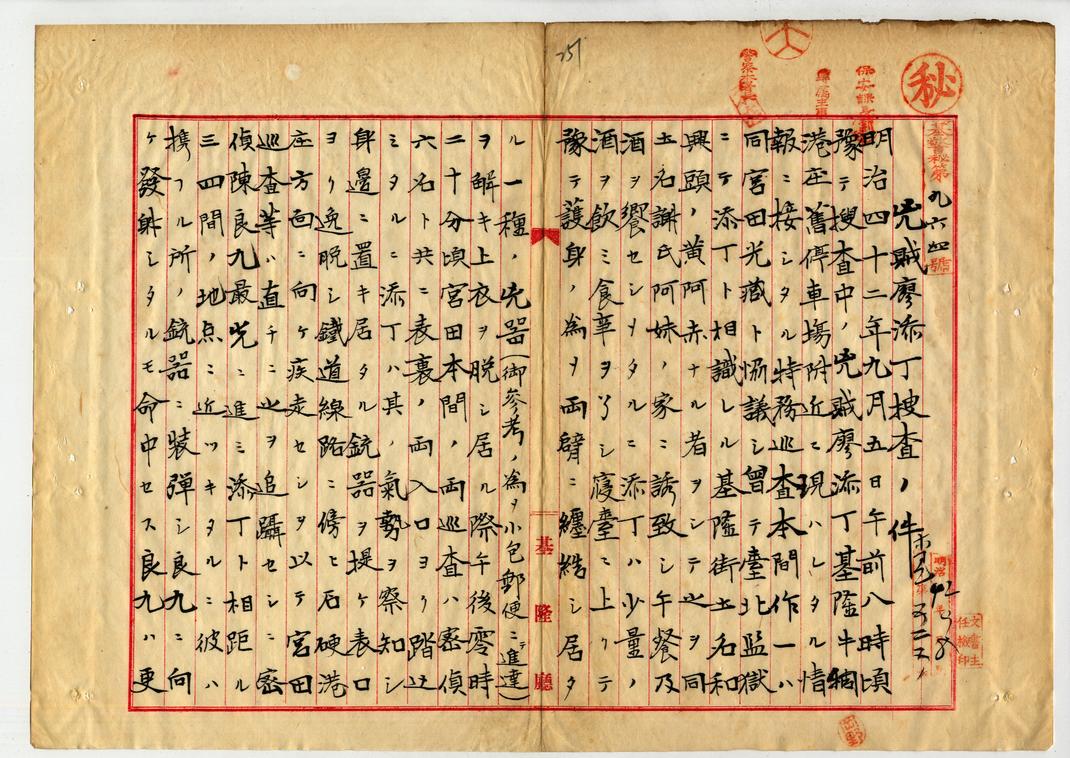 秘
保安課長
警察本署長
251
基警秘第九六四號
兇賊廖添丁搜查ノ件
文書主任檢印
明治四十二年九月五日午前八時頃
豫テ搜查中ノ兇賊廖添丁基隆牛稠
港庄舊停車場附近ニ現ハレタル情
報ニ接シタル特務巡查本間作一ハ
同宮田光藏ト協議シ曾テ臺北監獄
ニテ添丁ト相識レル基隆街土名和
興頭ノ黄阿赤ナル者ヲシテ之ヲ同
土名謝氏阿妹ノ家ニ誘致シ午餐及
酒ヲ饗セシメタルニ添丁ハ少量ノ
酒ヲ飲ミ食事ヲ了シ寢臺ニ上リテ
豫テ護身ノ為メ両臂ニ纏絡シ居タ
基隆廳
ル一種ノ兇器(御參考ノ為メ小包郵便ニテ進達)
ヲ解キ上衣ヲ脱シ居ル際午後零時
二十分頃宮田本間ノ両巡查ハ密偵
六名ト共ニ表裏ノ両入口ヨリ踏込
ミタルニ添丁ハ其ノ氣勢ヲ察知シ
身邊ニ置キ居タル銃器ヲ提ケ表口
ヨリ逸脱シ鐵道線路ニ傍ヒ石硬港
庄方面ニ向ケ疾走セシヲ以テ宮田
巡查等ハ直チニ之ヲ追躡セシニ密
偵陳良九最先ニ進ミ添丁ト相距ル
三四間ノ地点ニ近ツキタルニ彼ハ
携フル所ノ銃器ニ装弾シ良九ニ向
ケ發射シタルモ命中セス良九ハ更